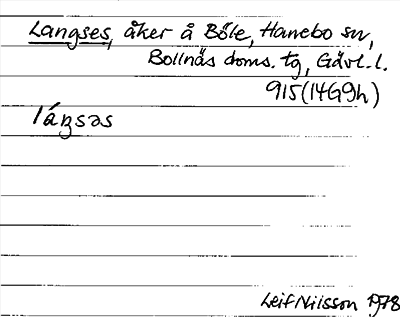 Langses, åker å Böle, Hanebo sn,
Bollnäs doms. tg, Gävl. l.
915(14G9h)
láŋsəs
Leif Nilsson 1978